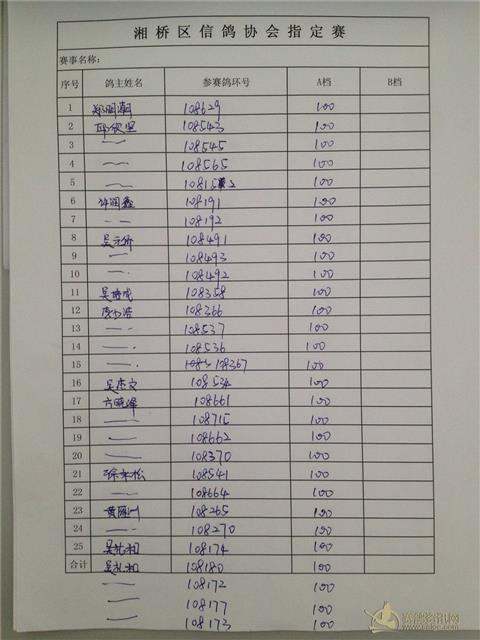 湘桥区信鸽协会指定赛
赛事名称:
序号 鸽主姓名 参赛鸽环号 A档 B档
1 郑明潮 108629 100
2 邱欣坚 108543 100
3 〃 108545 100
4 〃 108565 100
5 〃 10815 100
6 许润鑫 108191 100
7 〃 108192 100
8 吴示侨 108491 100
9 〃 108493 100
10 〃 108492 100
11 吴晓成 108358 100
12 108366 100
13 〃 108537 100
14 〃 108536 100
15 〃 108367 100
16 吴杰文 108534 100
17 方晓泽 108661 100
18 〃 108715 100
19 〃 108662 100
20 〃 108370 100
21 徐来松 108541 100
22 〃 108664 100
23 黄丽川 108265 100
24 〃 108270 100
25 吴扎湘 108174 100
合计 吴扎湘 108180 100
〃 108172 100
〃 108177 100
〃 108173 100